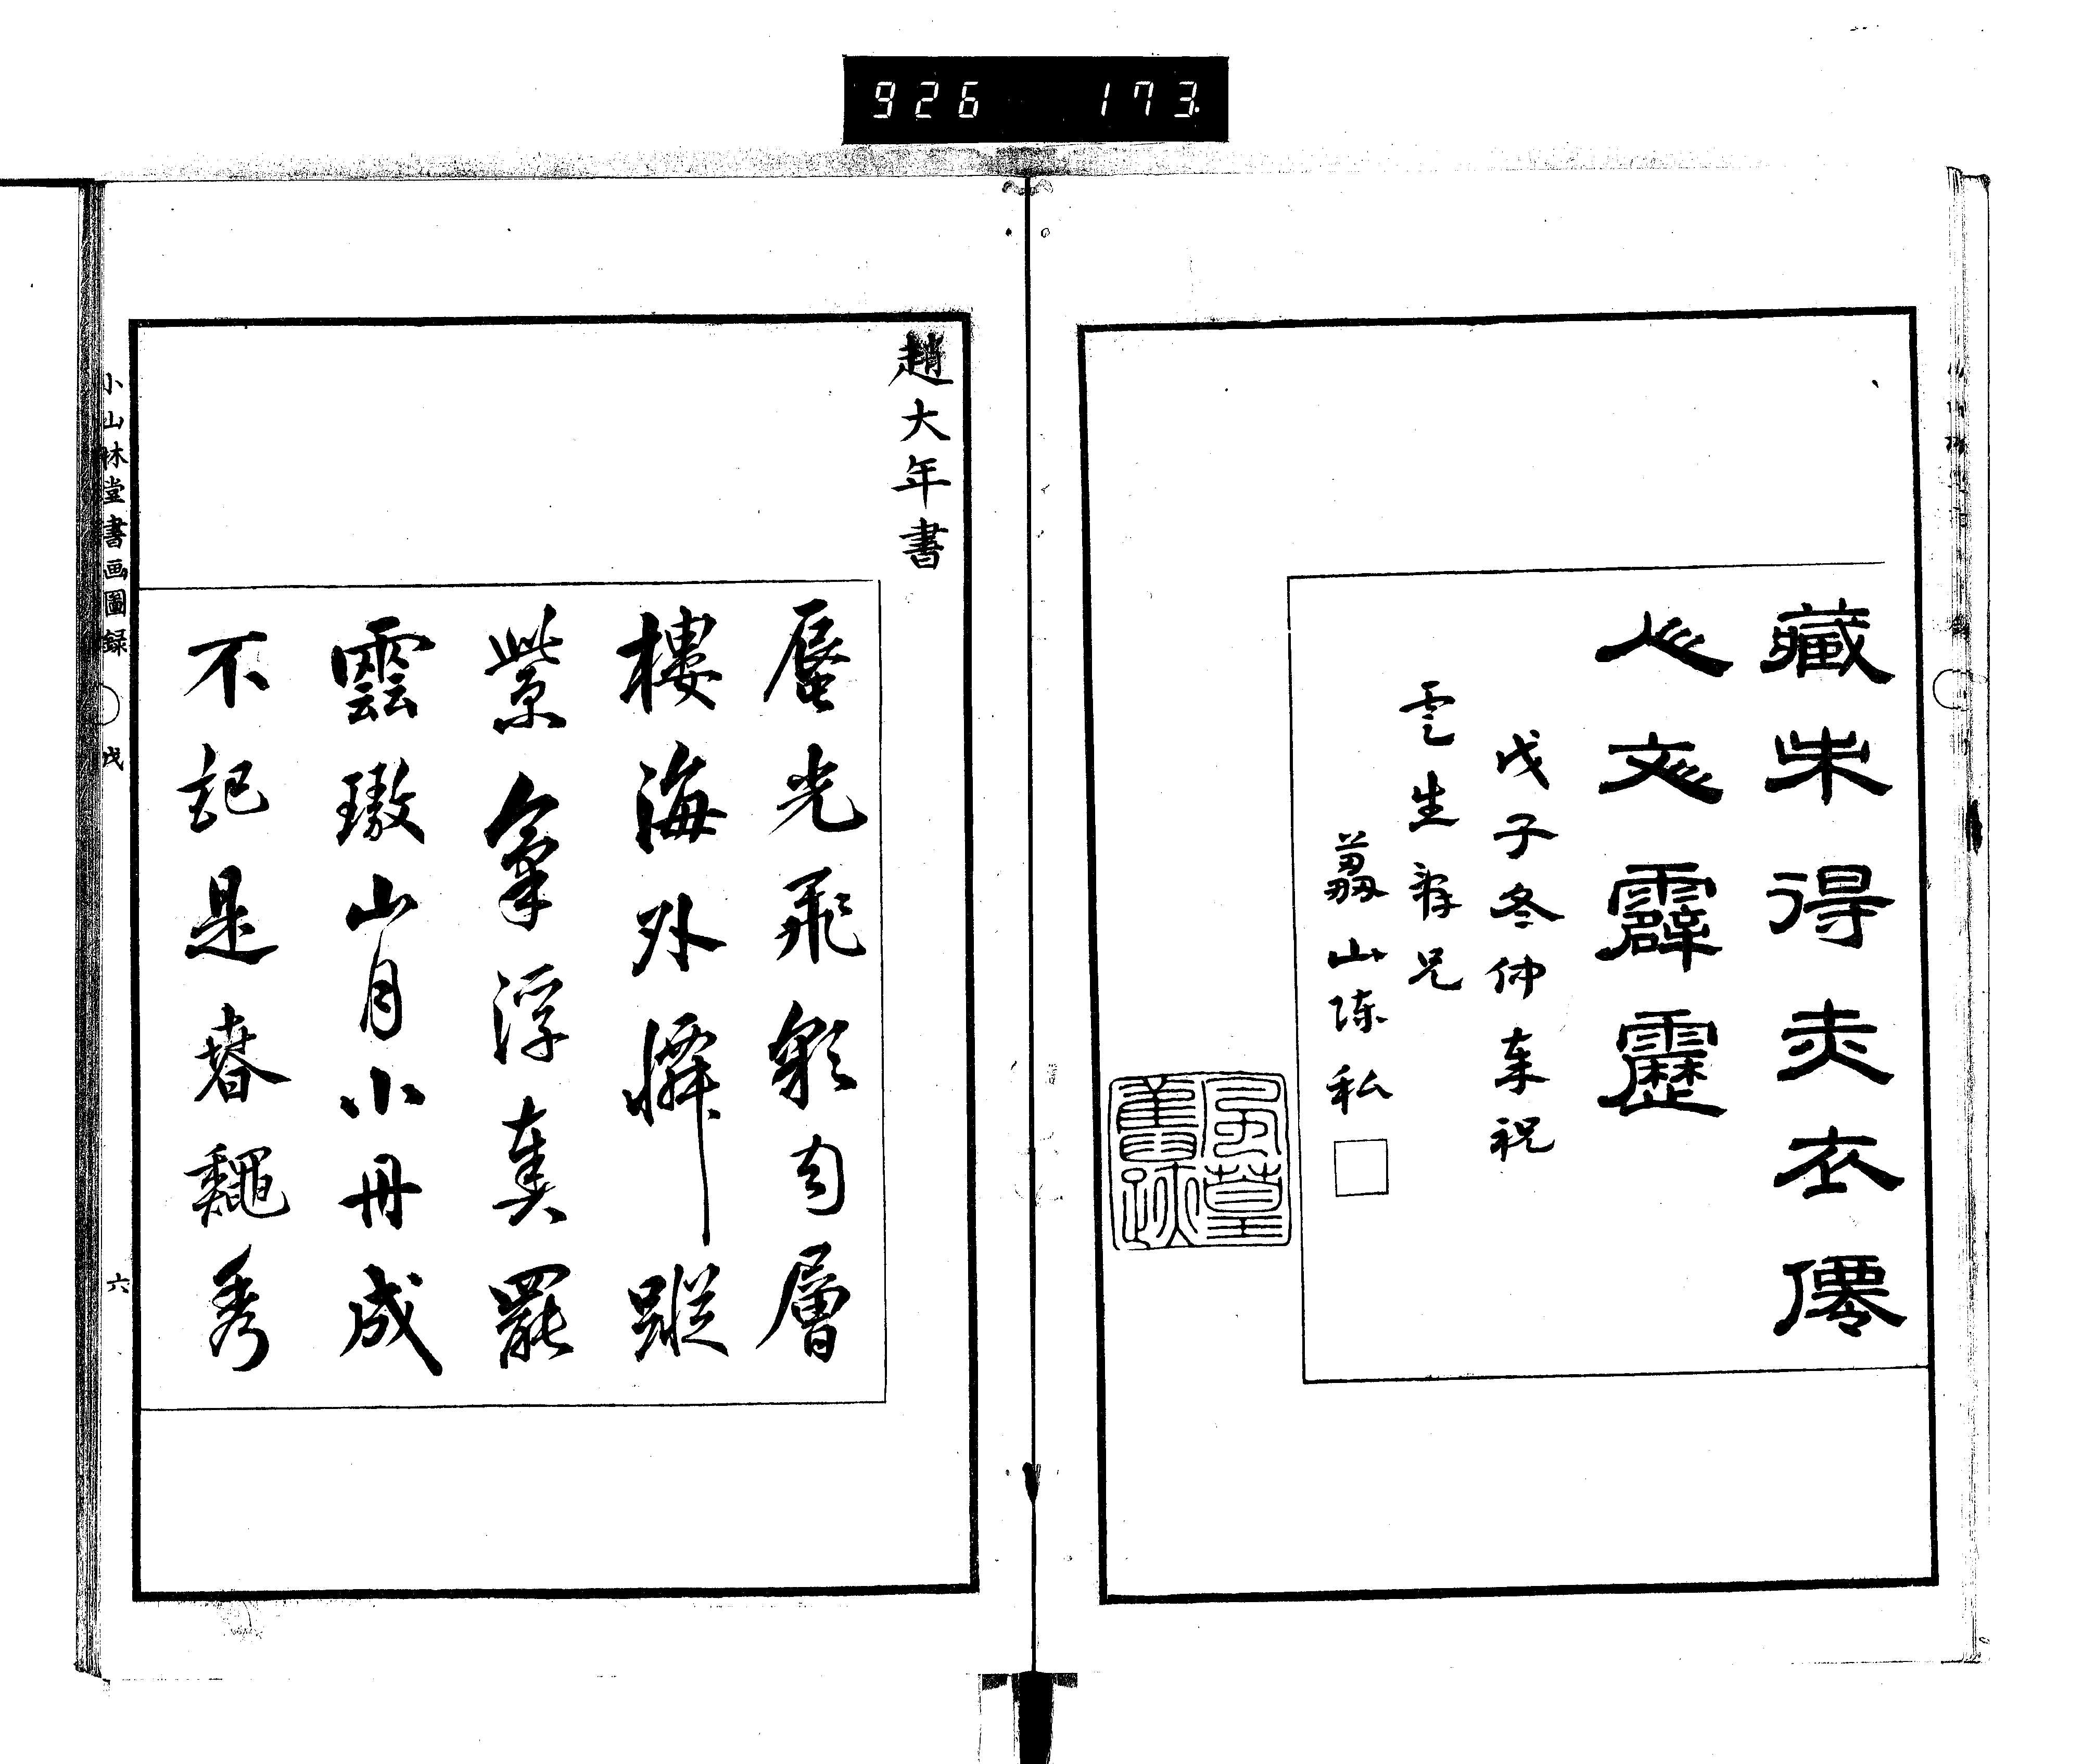 926 173
藏朱得夫衣僊
心文霹靂
戊子冬仲奉祝
雲生辭兄
山陳私
趙大年書
蜃光飛影自層
樓海外憐蹤
紫氣浮真罷
雲璈山月小丹成
不記是春秀
小山林堂書画圖録 戊 六